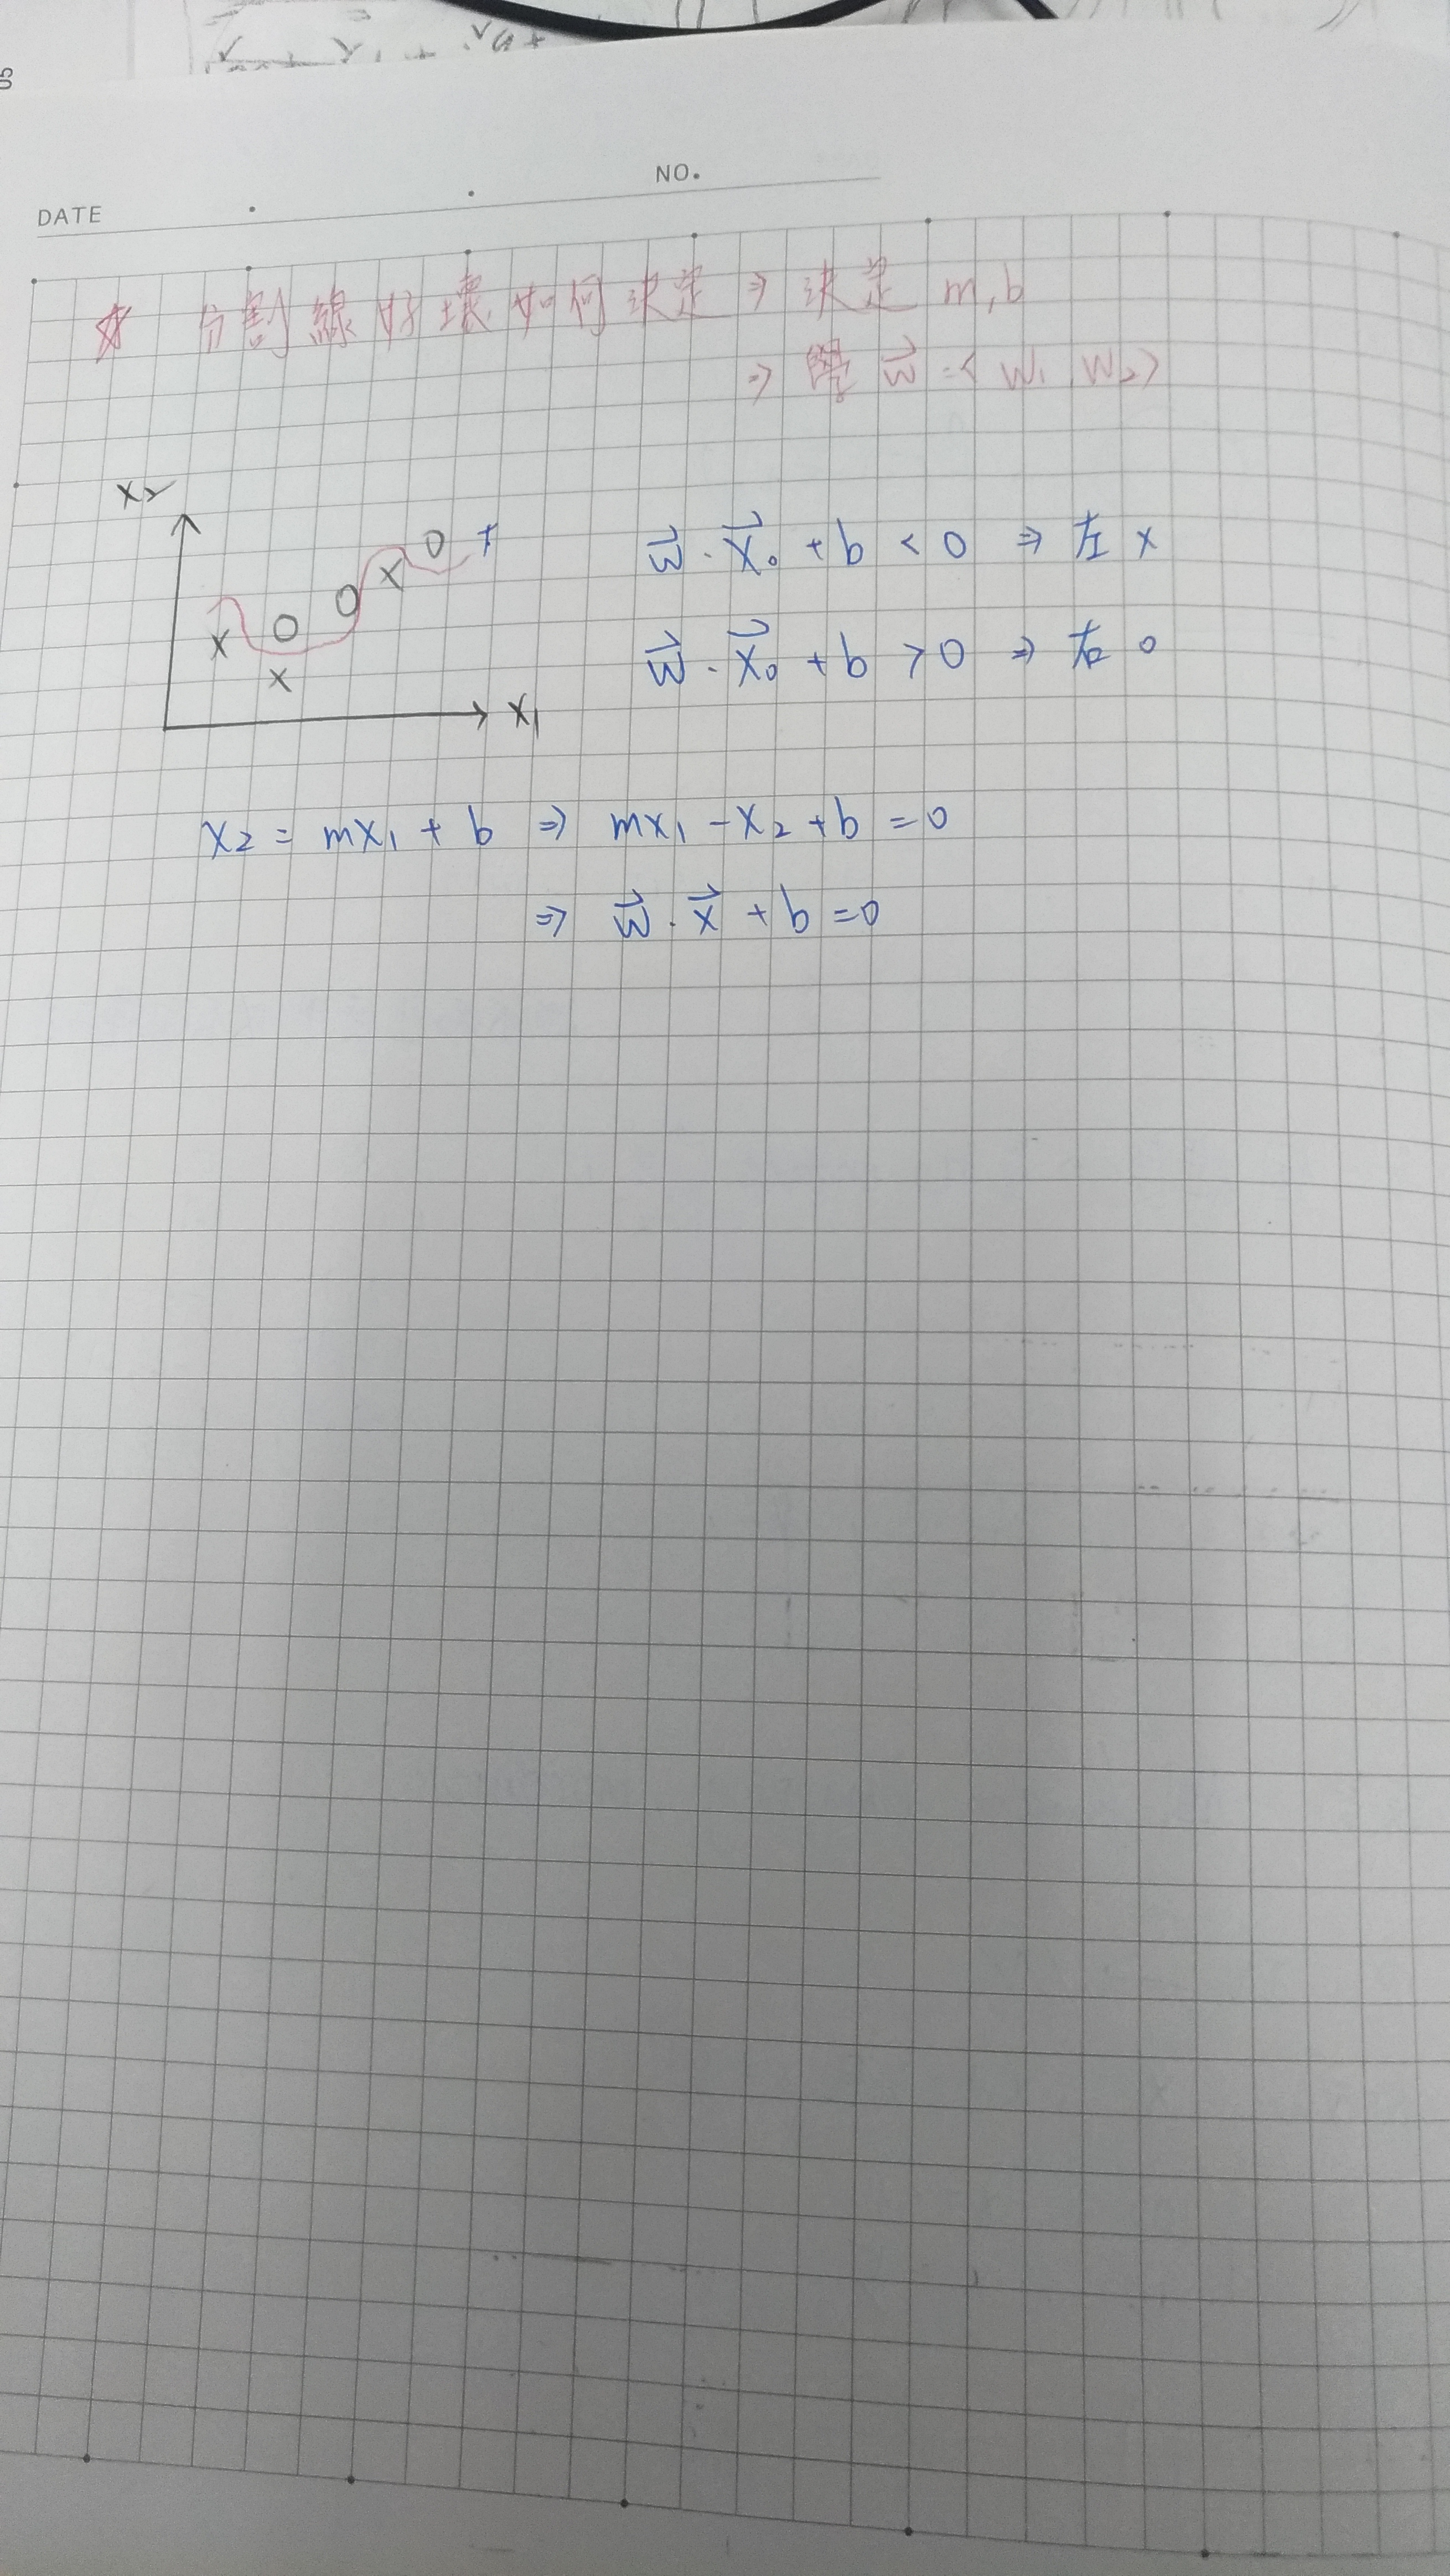 NO.
DATE
☆ 分割線好壞如何決定 ⇒ 決定 m,b
⇒ 學 w⃗ = < w₁ w₂ >
x₂
w⃗ · x⃗₀ + b < 0 ⇒ 左 x
w⃗ · x⃗₀ + b > 0 ⇒ 右 o
x₁
x₂ = mx₁ + b ⇒ mx₁ - x₂ + b = 0
⇒ w⃗ · x⃗ + b = 0